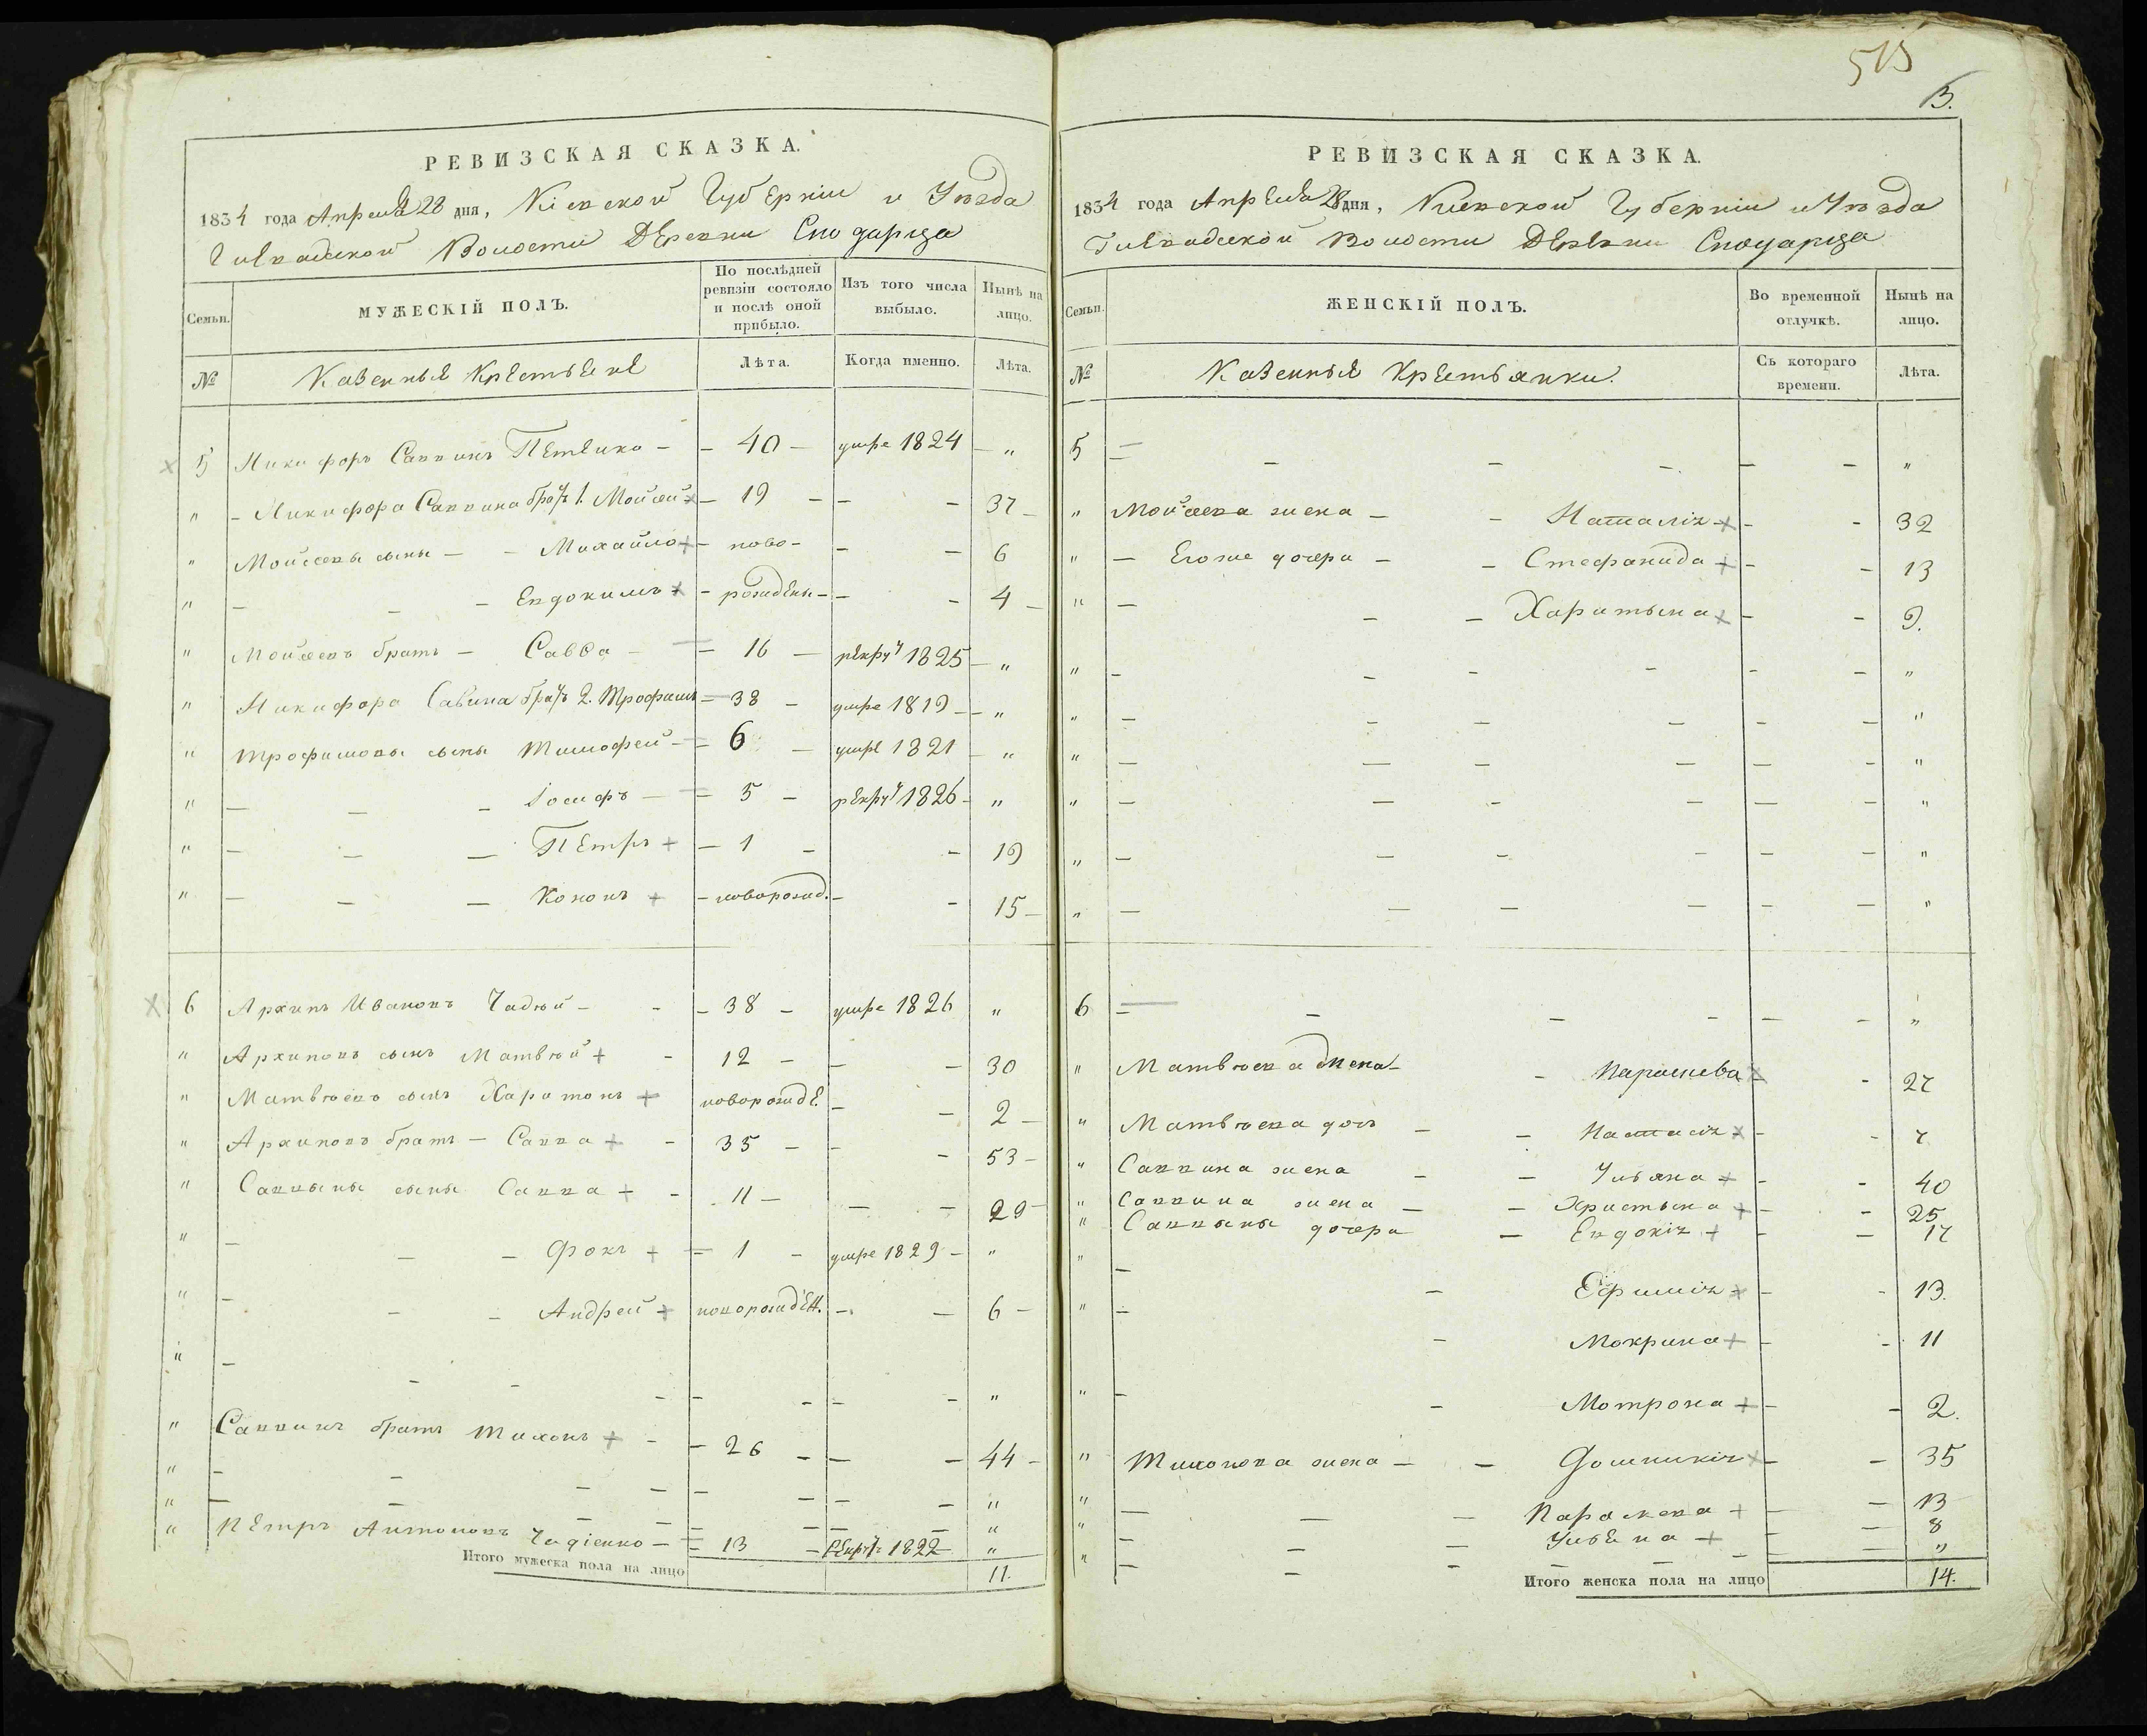 515
13.
РЕВИЗСКАЯ СКАЗКА.
1834 года Апреля 28 дня, Кіевской Губерніи и Уѣзда
Гвоздовской Волости Деревни Сподарца
Семьи. МУЖЕСКІЙ ПОЛЪ. По послѣдней ревизіи состояло и послѣ оной прибыло. Изъ того числа выбыло. Нынѣ на лицо.
№ Казенныя Крестьяне Лѣта. Когда именно. Лѣта.
5 Никифоръ Саввинъ Петенко - - 40 - умре 1824 - "
" - Никифора Саввина братъ 1. Мойсей + - 19 - - - 37 -
" Мойсеевы сыны - - Михайло + - ново- - - 6
" - - - Евдокимъ + - рожденн - - - 4 -
" Мойсеевъ братъ - Савва - = 16 - рекру 1825 - "
" Никифора Савина братъ 2. Трофимъ = 38 - умре 1819 - - "
" Трофимовы сыны Тимофей - = 6 - умре 1821 - "
" - - - Іосифъ - = 5 - рекру 1826 - "
" - - - Петръ + - 1 - - 19
" - - - Кононъ + - новорожд. - - 15 -
6 Архипъ Ивановъ Чадюй - - - 38 - умре 1826 "
" Архиповъ сынъ Матвѣй + - 12 - - - 30
" Матвѣевъ сынъ Харитонъ + новорожде. - - 2 -
" Архиповъ братъ - Савва + - 35 - - - 53 -
" Саввыны сыны Савва + - 11 - - - 29 -
" - - - Фокъ + = 1 - умре 1829 - "
" - - - Андрей + новорожден. - - 6 -
" - - - - - - - - "
" Саввинъ братъ Тихонъ + - - 26 - - - 44 -
" - - - - - - - - "
" - - - - - - - - "
" Петръ Антоновъ Чадіенко - = 13 - рекру: 1822 - "
Итого мужеска пола на лицо 11.
РЕВИЗСКАЯ СКАЗКА.
1834 года Апреля 28 дня, Кіевской Губерніи и Уѣзда
Гвоздовской Волости Деревни Сподарца
Семьи. ЖЕНСКІЙ ПОЛЪ. Во временной отлучкѣ. Нынѣ на лицо.
№ Казенныя Крестьянки. Съ котораго времени. Лѣта.
5 - - - - - - "
" Мойсеева жена - - Наталія + - - 32
" - Егоже дочери - - Стефанида + - - 13
" - - - Харитына + - - 9.
" - - - - - - "
" - - - - - - "
" - - - - - - "
" - - - - - - "
" - - - - - - "
" - - - - - - "
6 - - - - - - "
" Матвѣева жена - - Параскева + - 27
" Матвѣева дочь - - Настасія + - - 7
" Саввина жена - - Ульяна + - - 40
" Саввина жена - - Христына + - - 25
" Саввыны дочери - Евдокія + - - 17
" - - Ефимія + - - 13.
" - - Мокрина + - - 11
" - - Мотрона + - - 2.
" Тихонова жена - - Домникія + - - 35
" - - - Параскева + - - 13
" - - - Ульяна + - - 8
" - - - - - - - "
Итого женска пола на лицо 14.